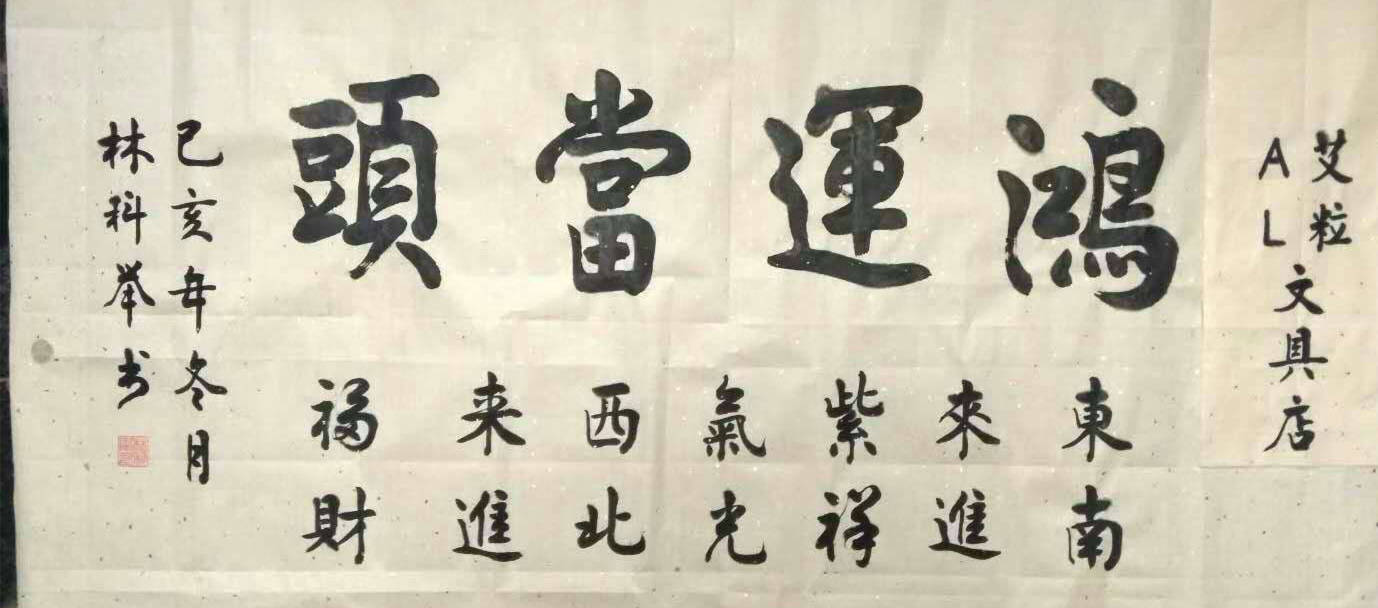 艾粒
AL
文具店
鴻運當頭
東來紫氣西来福
南進祥光北進財
己亥年冬月
林科举书